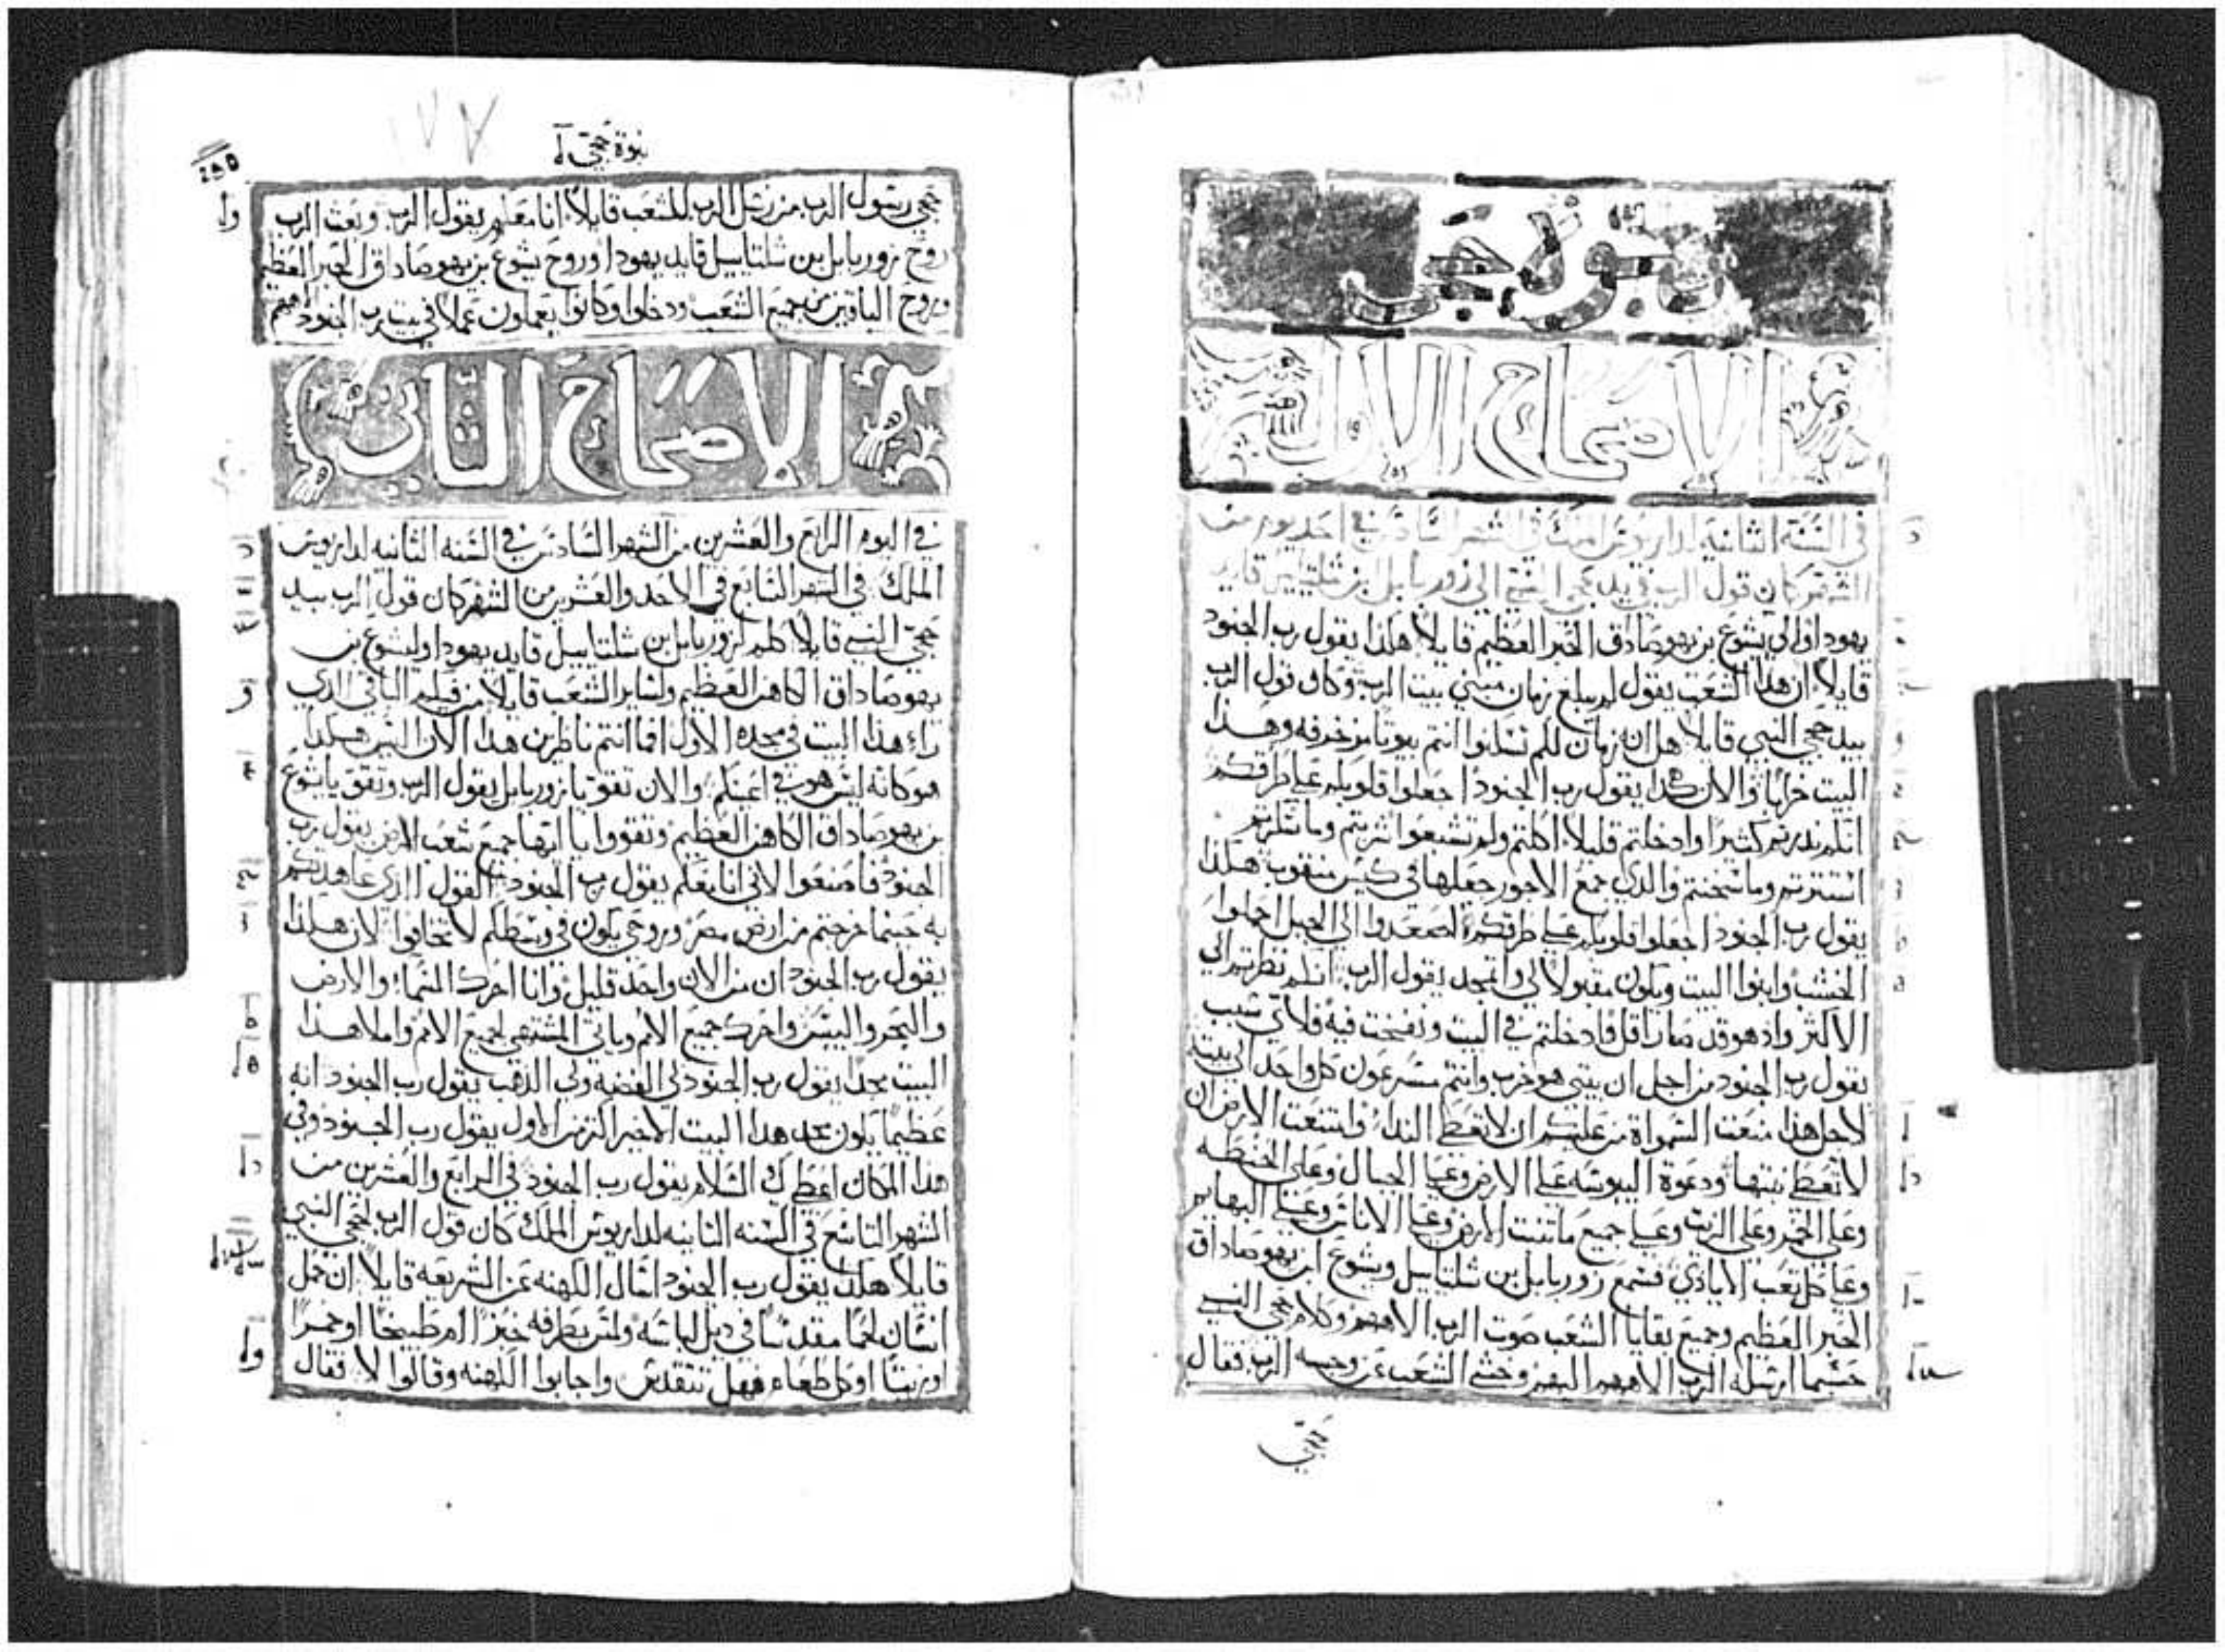 نبوة حجى
الاصحاح الاول
في السنة الثانية لداريوش الملك في الشهر السادس في احد يوم من
الشهر كان قول الرب في يد حجي النبي الي زوربابل بن شلتاييل قايد
يهودا والي يشوع بن يهوصاداق الحبر العظيم قايلاً هكذا يقول رب الجنود
قايلاً ان هذا الشعب يقول لم يبلغ زمان مبني بيت الرب وكان قول الرب
بيد حجي النبي قايلا هل انه زمان لكم تسكنوا انتم بيوتا مزخرفه وهذا
البيت خرابا والان هكذا يقول رب الجنود اجعلوا قلوبكم علي طرقكم
انكم بذرتم كثيرا وادخلتم قليلا اكلتم ولم تشبعوا شربتم وما سكرتم
استترتم وما سخنتم والذي جمع الاجور جعلها في كيس منقوب هكذا
يقول رب الجنود اجعلوا قلوبكم علي طرقكم اصعدوا الي الجبل احملوا
الخشب وابنوا البيت ويكون مقبولا لي واتمجد يقول الرب انكم نظرتم الي
الاكثر واذ هو قد صار اقل فادخلتم في البيت ونفخت فيه فلاي سبب
يقول رب الجنود من اجل ان بيتي هو خرب وانتم مسرعون كل واحد الي بيته
لاجل هذا منعت السمواة من عليكم ان لا تعطي الندا وامتنعت الارض ان
لا تعطي نبتها ودعوة اليبوسه علي الارض وعلي الجبال وعلي الحنطه
وعلي الخمر وعلي الزيت وعلي جميع ما تنبت الارض وعلي الاناس وعلي البهايم
وعلي كل تعب الايادي فسمع زوربابل بن شلتاييل ويشوع ابن يهوصاداق
الحبر العظيم وجميع بقايا الشعب صوت الرب الاههم وكلام حجي النبي
حسبما ارسله الرب الاههم اليهم وخشي الشعب عن وجه الرب فقال
حجي
نبوة حجي ا
حجي رسول الرب من رسل الرب للشعب قايلاً انا معكم يقول الرب وبعث الرب
روح زوربابل بن شلتاييل قايد يهودا وروح يشوع بن يهوصاداق الحبر العظيم
وروح الباقين من جميع الشعب ودخلوا وكانوا يعملون عملا في بيت رب الجنود الاههم
الاصحاح الثاني
في اليوم الرابع والعشرين من الشهر السادس في السنه الثانيه لداريوش
الملك في الشهر السابع في الاحد والعشرين من الشهر كان قول الرب بيد
حجي النبي قايلا كلم لزوربابل بن شلتاييل قايد يهودا وليشوع بن
يهوصاداق الكاهن العظيم ولساير الشعب قايلا من فيكم الباقي الذي
راء هذا البيت في مجده الاول افما انتم ناظرين هذا الان اليس هكذا
هو كانه ليس هو في اعينكم والان تقوي يا زوربابل يقول الرب وتقوي يا يشوع
بن يهوصاداق الكاهن العظيم وتقووا يا ايها جميع شعب الارض يقول رب
الجنود فاصنعوا لاني انا معكم يقول رب الجنود القول الذي عاهدتكم
به حينما خرجتم من ارض مصر وروحي يكون في وسطكم لا تخافوا لان هكذا
يقول رب الجنود ان من الان واحد قليل وانا احرك السماء والارض
والبحر واليبس واحرك جميع الامم وياتي المشتهي لجميع الامم واملا هذا
البيت مجدا يقول رب الجنود لي الفضة ولي الذهب يقول رب الجنود انه
عظيماً يكون مجد هذا البيت الاخير اكثر من الاول يقول رب الجنود وفي
هذا المكان اعطي السلام يقول رب الجنود في الرابع والعشرين من
الشهر التاسع في السنه الثانيه لداريوش الملك كان قول الرب لحجي النبي
قايلا هكذا يقول رب الجنود اسال الكهنه عن الشريعه قايلاً ان حمل
انسان لحما مقدسا في ديل لباسه ولمس بطرفه خبزا ام طبيخا او خمراً
او زيتاً او كل طعام فهل تتقدس واجابوا الكهنه وقالوا لا فقال